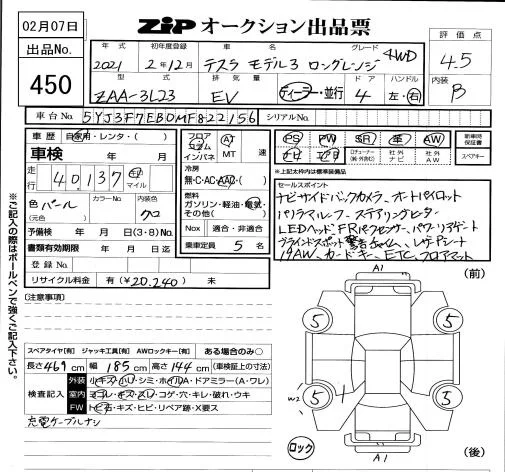 02月07日
ZiP オークション出品票
出品No.
450
年式 初年度登録 車名 グレード
2021 2年12月 テスラ モデル3 ロングレンジ 4WD
型式 排気量 ドア ハンドル
ZAA-3L23 EV ディーラー・並行 4 左・右
評価点
4.5
内装
B
車台No. 5YJ3F7EB0MF822156 シリアルNo.
車歴 自家用・レンタ・( )
車検 年 月
走行 40,137 km マイル
色 パール (元色)
カラーNo.
内装色 クロ
予備検 年 月 日(3・8)No.
書類有効期限 年 月 日迄
登録No.
リサイクル料金 有(¥20,240) 未
フロア コラム インパネ AT MT 速
冷房 無・C・AC・AAC・( )
燃料 ガソリン・軽油・電気・その他( )
Nox 適合・非適合
乗車定員 5 名
PS PW SR 革 AW
ナビ エアB
社外ナビ 社外AW
新車時保証書
スペアキー
※上記太枠内は標準装備品
セールスポイント
ナビサイドバックカメラ、オートパイロット
パノラマルーフ、ステアリングヒーター
LEDヘッド、FRパークセンサー、パワーリアゲート
ブラインドスポット警告チャイム、レザーPシート
19AW、カードキー、ETC、フロアマット
[注意事項]
スペアタイヤ[有] ジャッキ工具[有] AWロックキー[有] ある場合のみ○
長さ 469 cm 幅 185 cm 高さ 144 cm (車検証上の寸法)
検査記入
外装 小キズ・小凹・シミ・ホイルA・ドアミラー(A・ワレ)
室内 ヨゴレ・キズ・スレ・コゲ・穴・キレ・破れ・ウキ
FW トビ石・キズ・ヒビ・リペア跡・X要ス
充電ケーブルナシ
A1
(前)
5
5
5
4
5
W2
ロック
A1
(後)
※ご記入の際はボールペンで強くご記入下さい。